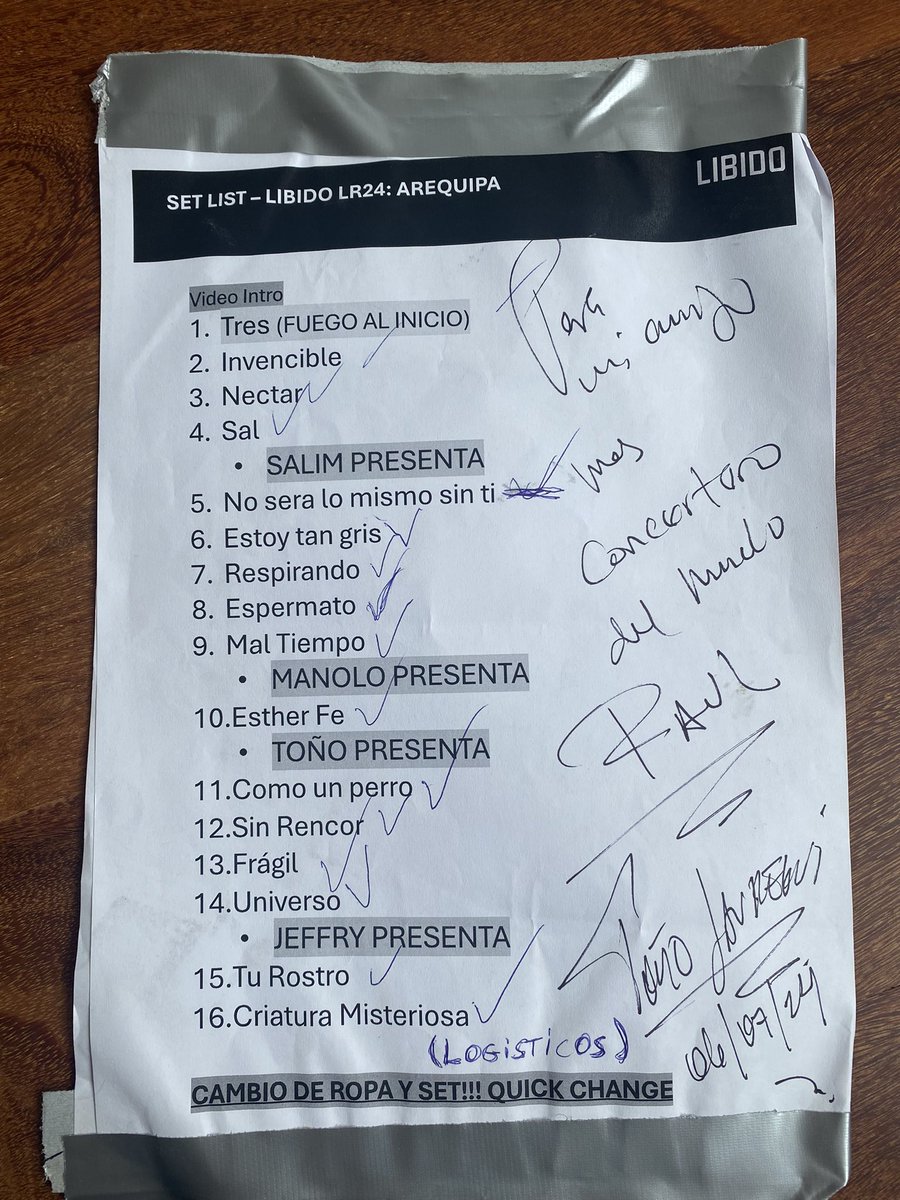 LIBIDO
SET LIST – LIBIDO LR24: AREQUIPA
Video Intro
1. Tres (FUEGO AL INICIO)
2. Invencible
3. Nectar
4. Sal
• SALIM PRESENTA
5. No sera lo mismo sin ti
6. Estoy tan gris
7. Respirando
8. Espermato
9. Mal Tiempo
• MANOLO PRESENTA
10.Esther Fe
• TOÑO PRESENTA
11.Como un perro
12.Sin Rencor
13.Frágil
14.Universo
• JEFFRY PRESENTA
15.Tu Rostro
16.Criatura Misteriosa
(LOGISTICOS)
CAMBIO DE ROPA Y SET!!! QUICK CHANGE
Para
mi amigo
mas
Concertoro
del Mundo
RAUL
TOÑO JAUREGUI
06/07/24